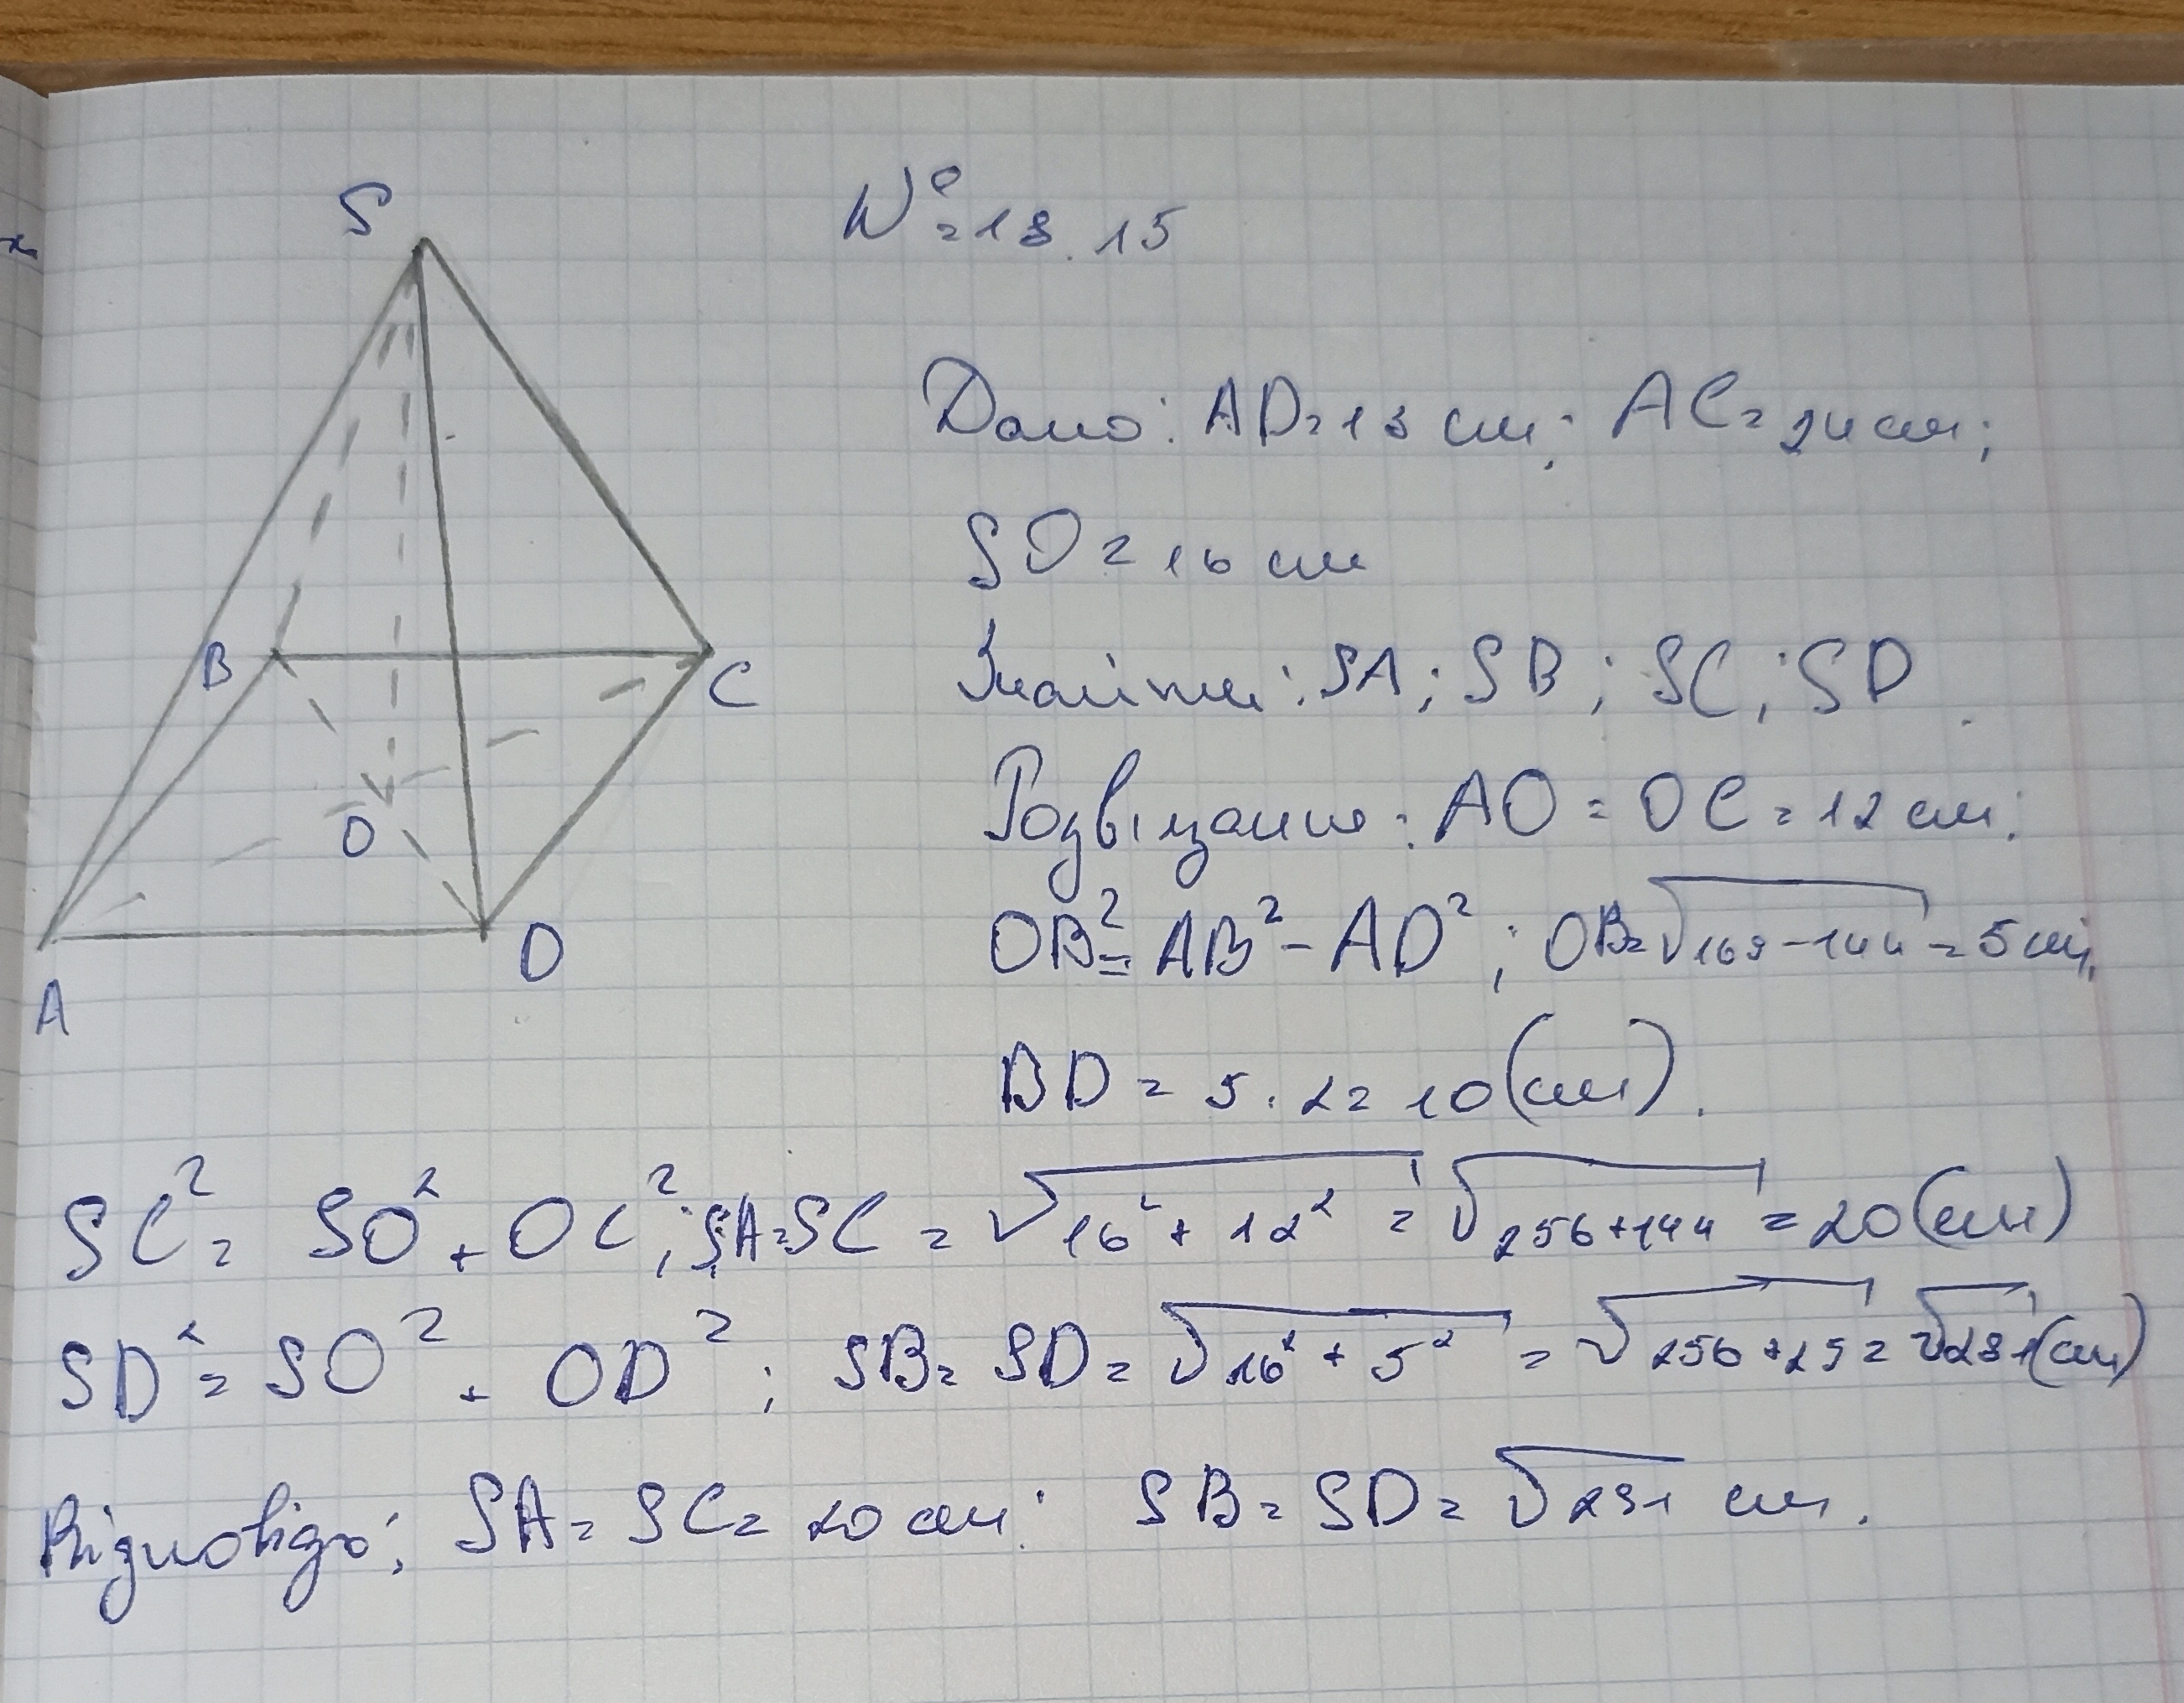 S
№ 18.15
Дано: AD = 13 см; AC = 24 см;
SO = 16 см
B
C
Знайти: SA; SB; SC; SD.
O
Розвʼязання: AO = OC = 12 см;
A
D
OB² = AB² - AD²; OB = √169 - 144 = 5 см;
BD = 5 · 2 = 10 (см).
SC² = SO² + OC²; SA = SC = √16² + 12² = √256 + 144 = 20 (см)
SD² = SO² + OD²; SB = SD = √16² + 5² = √256 + 25 = √281 (см)
Відповідь: SA = SC = 20 см; SB = SD = √281 см.